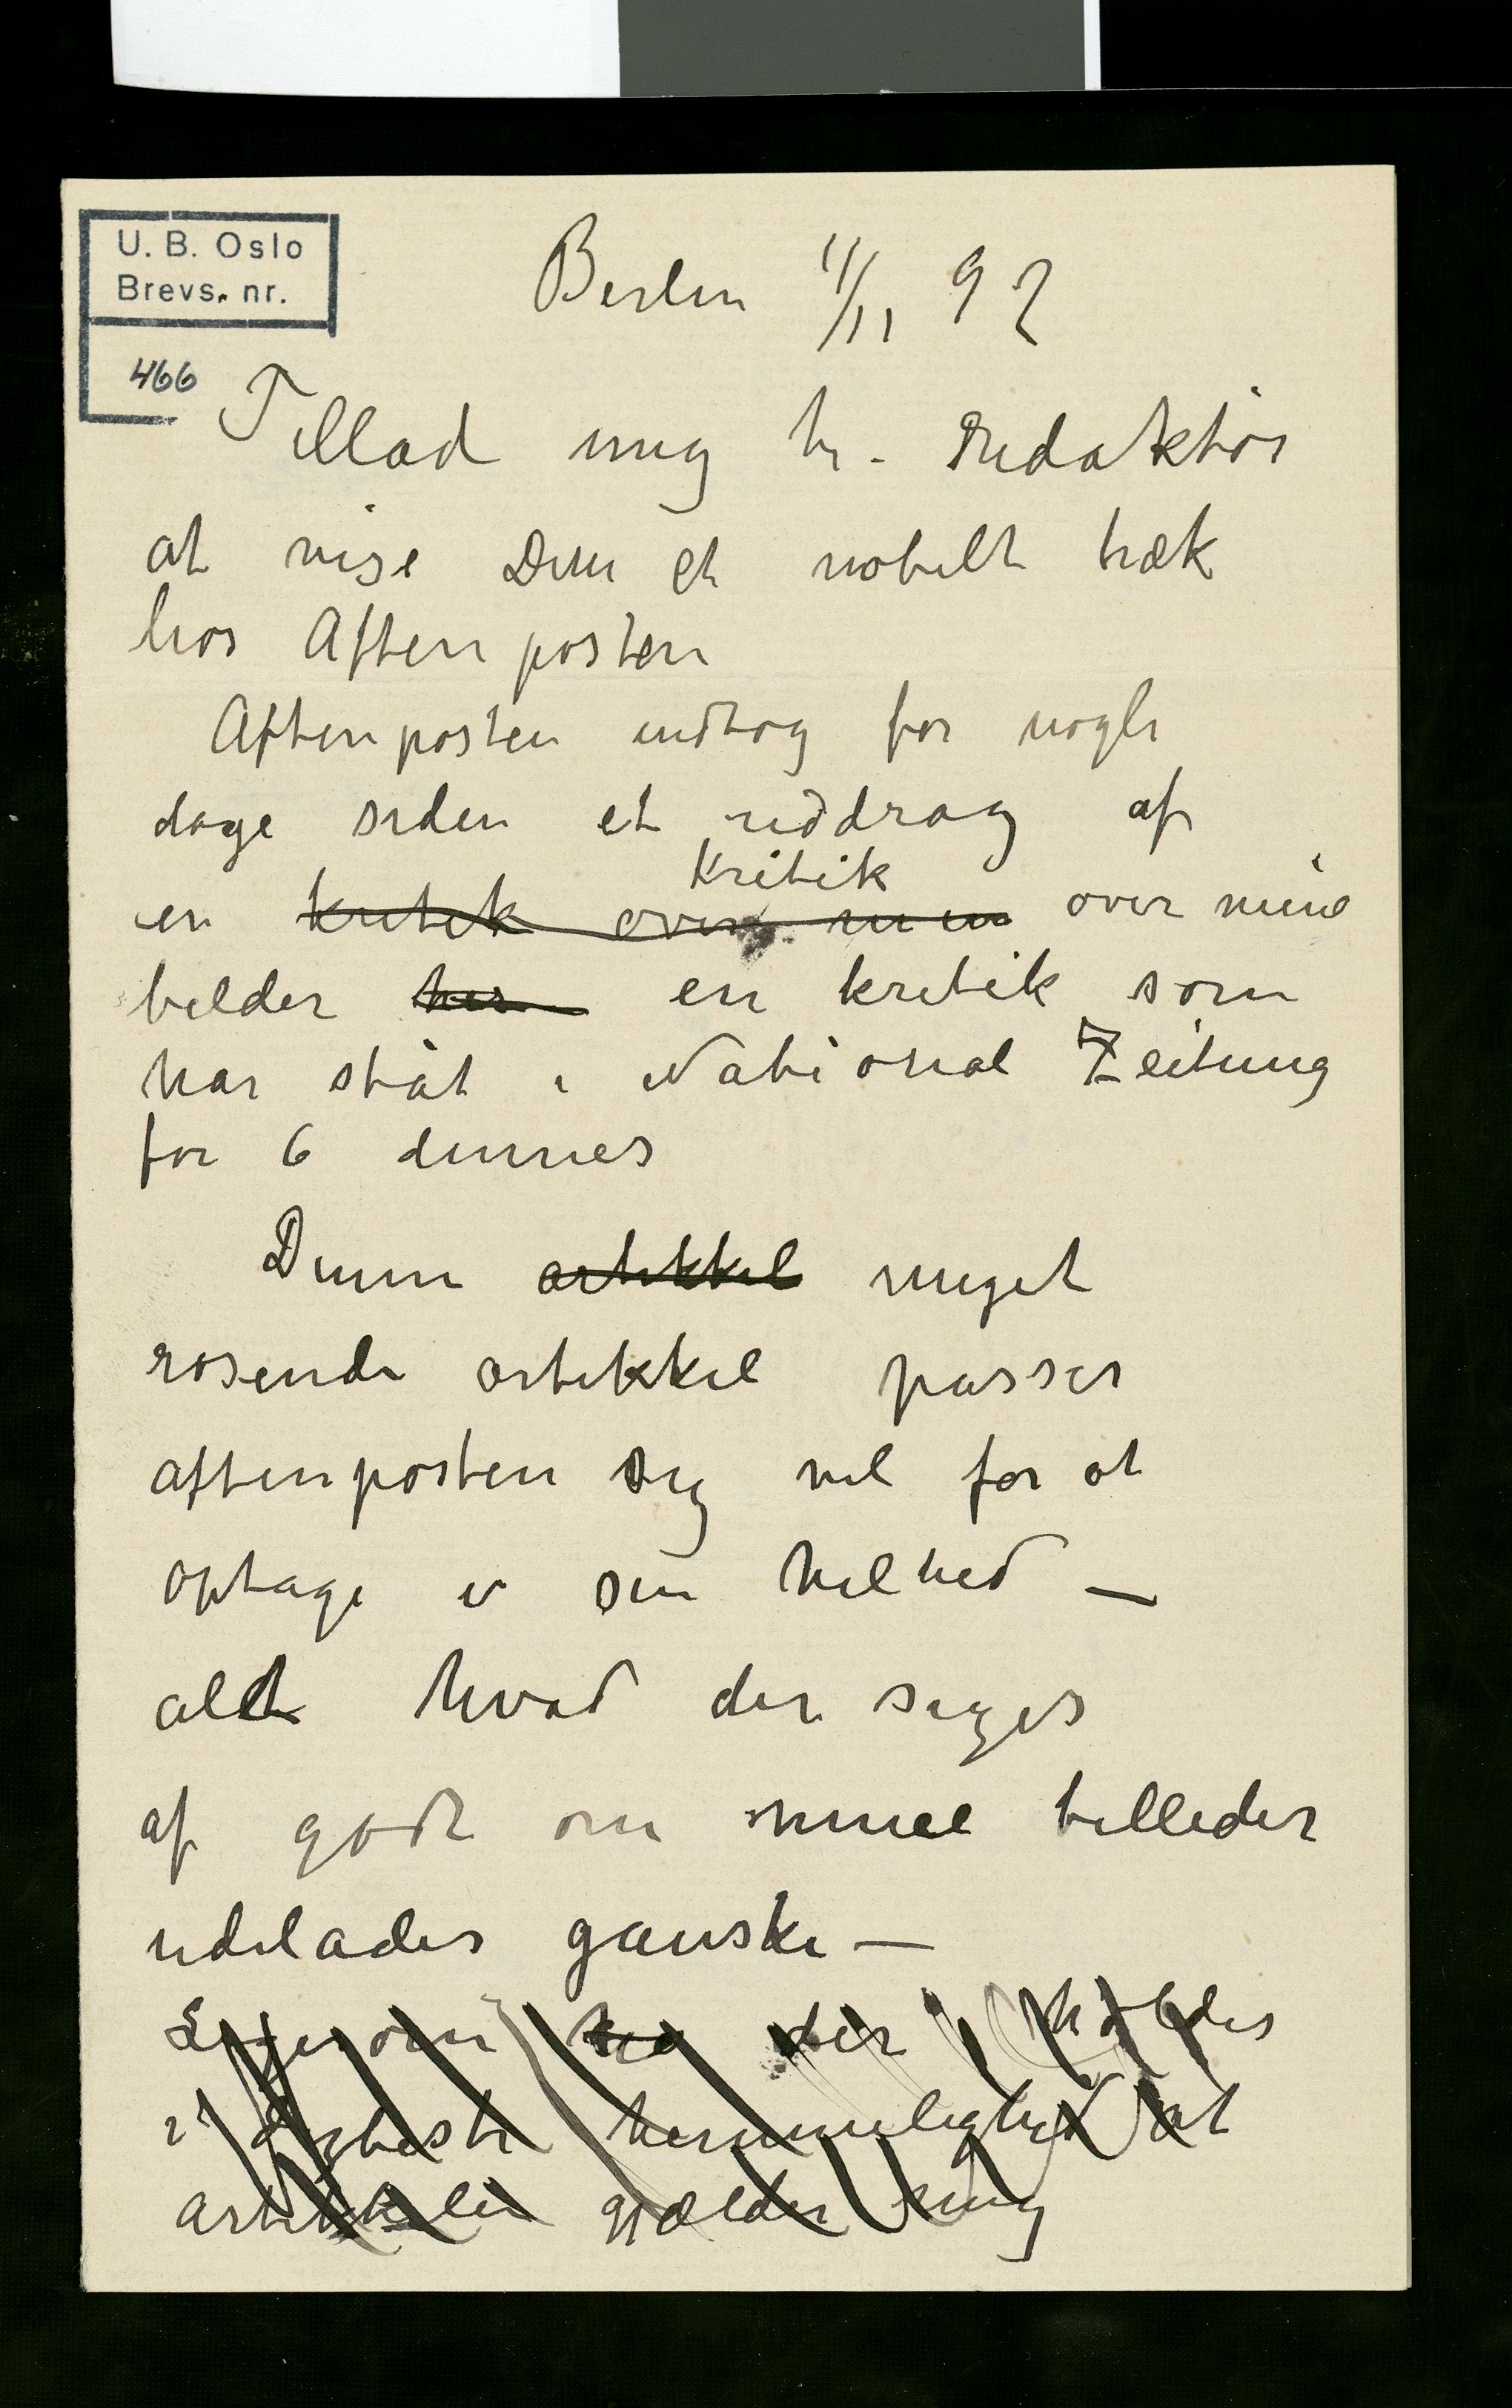 U. B. Oslo
Brevs. nr.
466
Berlin 11/11 92
Tillad mig hr. redaktör
at vise Dem et nobelt træk
hos Aftenposten
Aftenposten indtog for nogle
dage siden et uddrag af
Kritik
en kritik over min over mine
belder her en kritik som
har ståt i National Zeitung
for 6 dennes
Denne artikkel meget
rosende artikkel passer
aftenposten sig vel for at
optage i sin helhed –
alt hvad der siges
af godt om mine billeder
udelades ganske –
Ligesom der holdes
i dybeste hemmelighed at
artikkelen gjælder mig